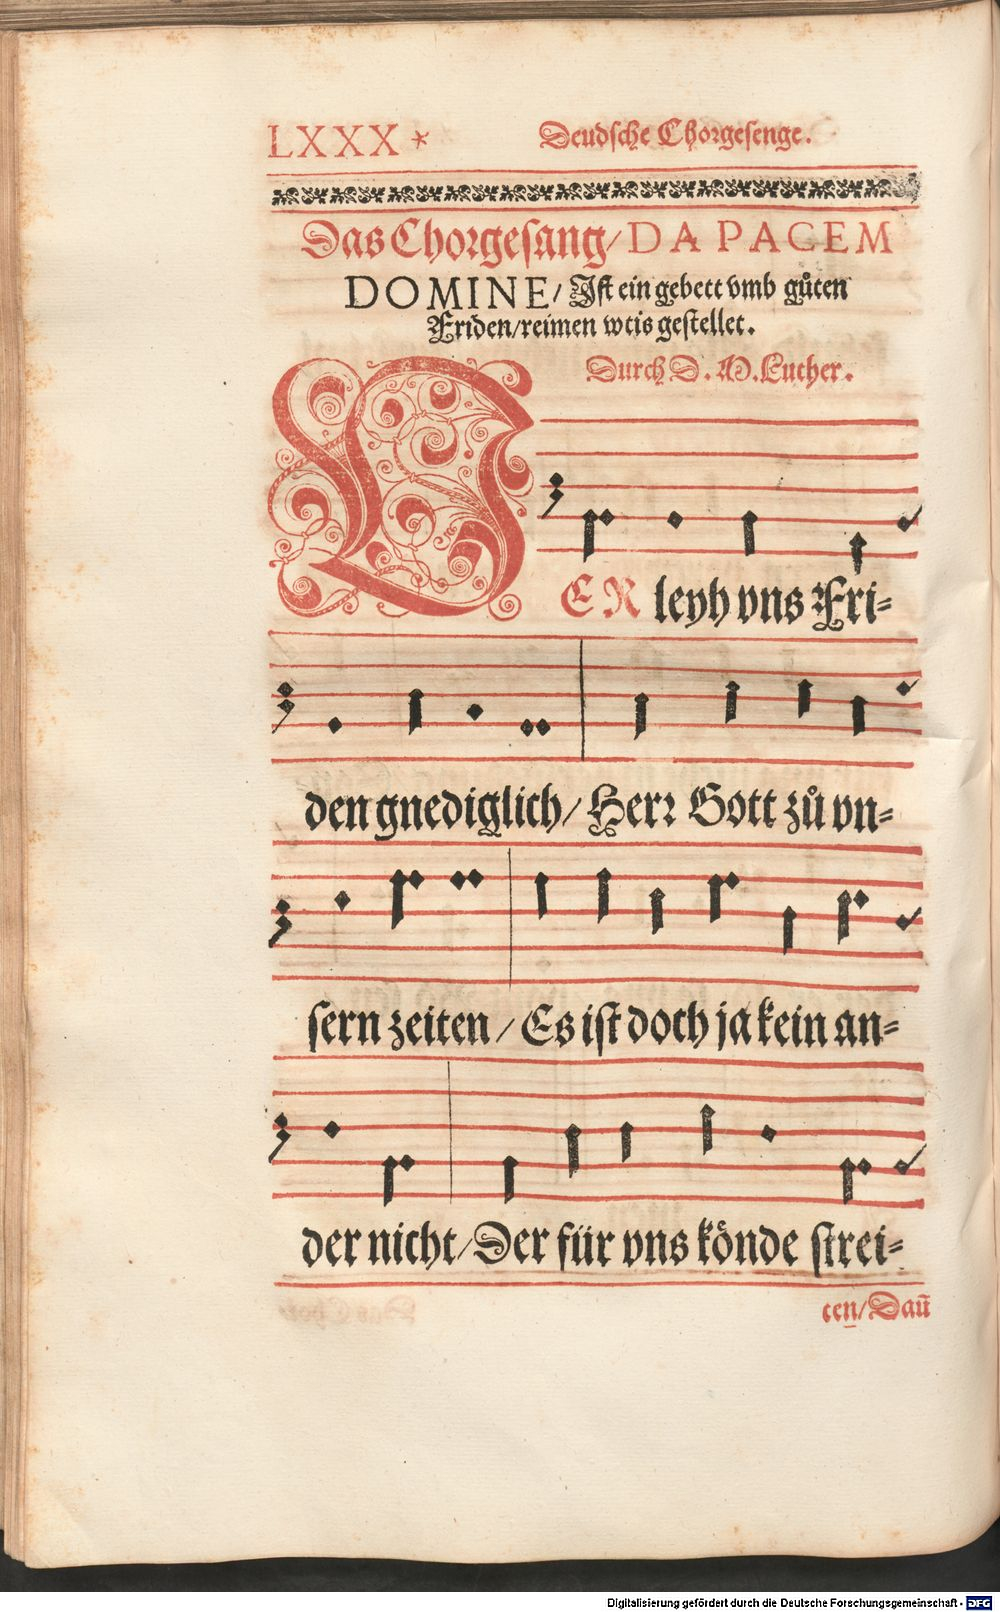 LXXX * Deudsche Chorgesenge.
Das Chorgesang/ DA PACEM
DOMINE/ Ist ein gebett vmb gůten
Friden/reimen weis gestellet.
Durch D. M. Luther.
VER leyh vns Fri=
den gnediglich/ Herr Gott zů vn=
sern zeiten/ Es ist doch ja kein an=
der nicht/Der für vns könde strei=
ten/Dañ
Digitalisierung gefördert durch die Deutsche Forschungsgemeinschaft - DFG